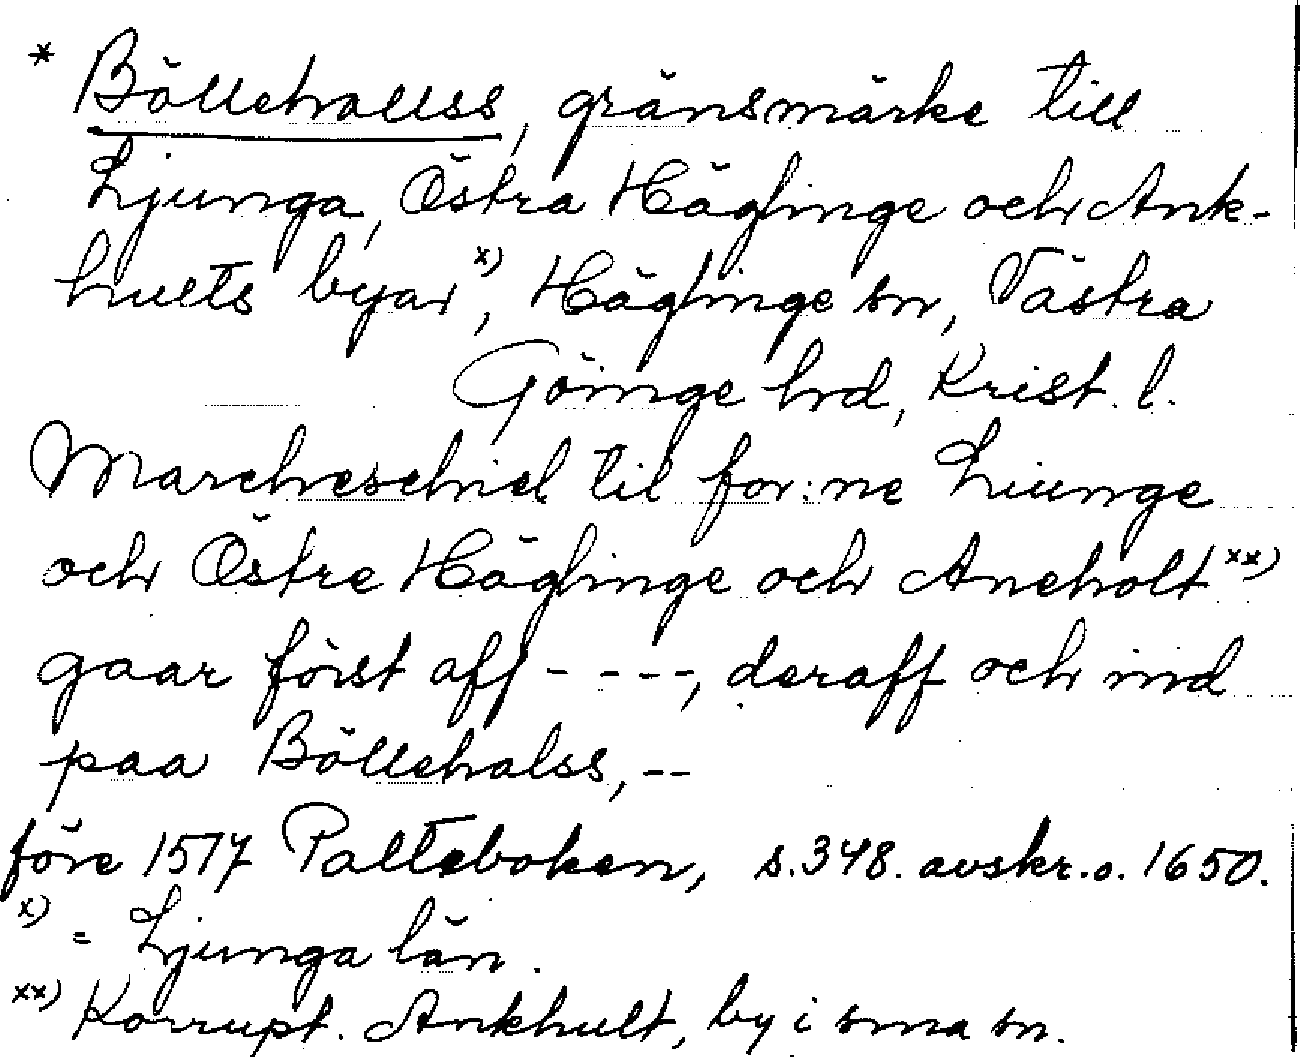 * Böllehallss, gränsmärke till
Ljunga, Östra Häglinge och Ank-
hults byar x), Häglinge sn, Västra
Göinge hrd, Krist. l.
Marcheschiel til for:ne Liunge
och Östre Häglinge och Aneholt xx)
gaar först aff - - - -, deraff och ind
paa Böllehalss, - -
före 1517 Palteboken, s.348. avskr.o. 1650.
x) = Ljunga län.
xx) Korrupt. Ankhult, by i sma sn.